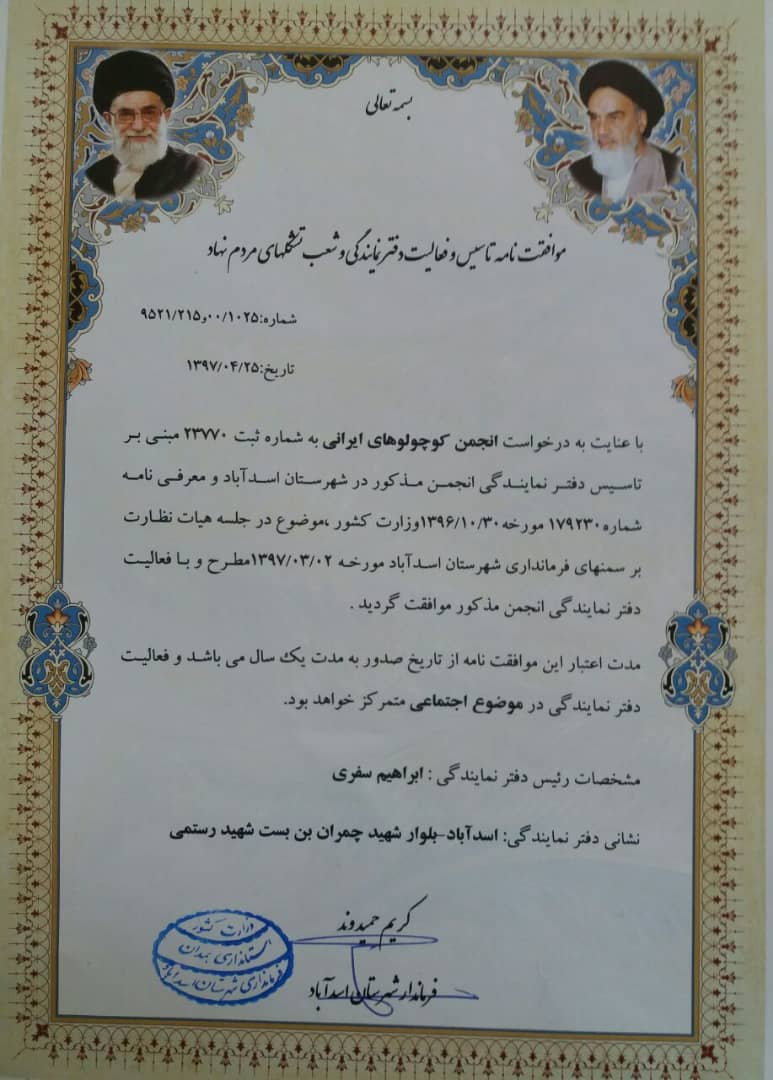 بسمه تعالی
موافقت نامه تاسیس و فعالیت دفتر نمایندگی و شعب تشکلهای مردم نهاد
شماره:۹۵۲۱/۲۱۵و۰۰/۱۰۲۵
تاریخ:۱۳۹۷/۰۴/۲۵
با عنایت به درخواست انجمن کوچولوهای ایرانی به شماره ثبت ۲۳۷۷۰ مبنی بر
تاسیس دفتر نمایندگی انجمن مذکور در شهرستان اسدآباد و معرفی نامه
شماره ۱۷۹۲۳۰ مورخه ۱۳۹۶/۱۰/۳۰وزارت کشور ،موضوع در جلسه هیات نظارت
بر سمنهای فرمانداری شهرستان اسدآباد مورخه ۱۳۹۷/۰۳/۰۲مطرح و با فعالیت
دفتر نمایندگی انجمن مذکور موافقت گردید .
مدت اعتبار این موافقت نامه از تاریخ صدور به مدت یک سال می باشد و فعالیت
دفتر نمایندگی در موضوع اجتماعی متمرکز خواهد بود.
مشخصات رئیس دفتر نمایندگی : ابراهیم سفری
نشانی دفتر نمایندگی: اسدآباد-بلوار شهید چمران بن بست شهید رستمی
کریم حمیدوند
فرماندار شهرستان اسدآباد
وزارت کشور
استانداری همدان
فرمانداری شهرستان اسدآباد